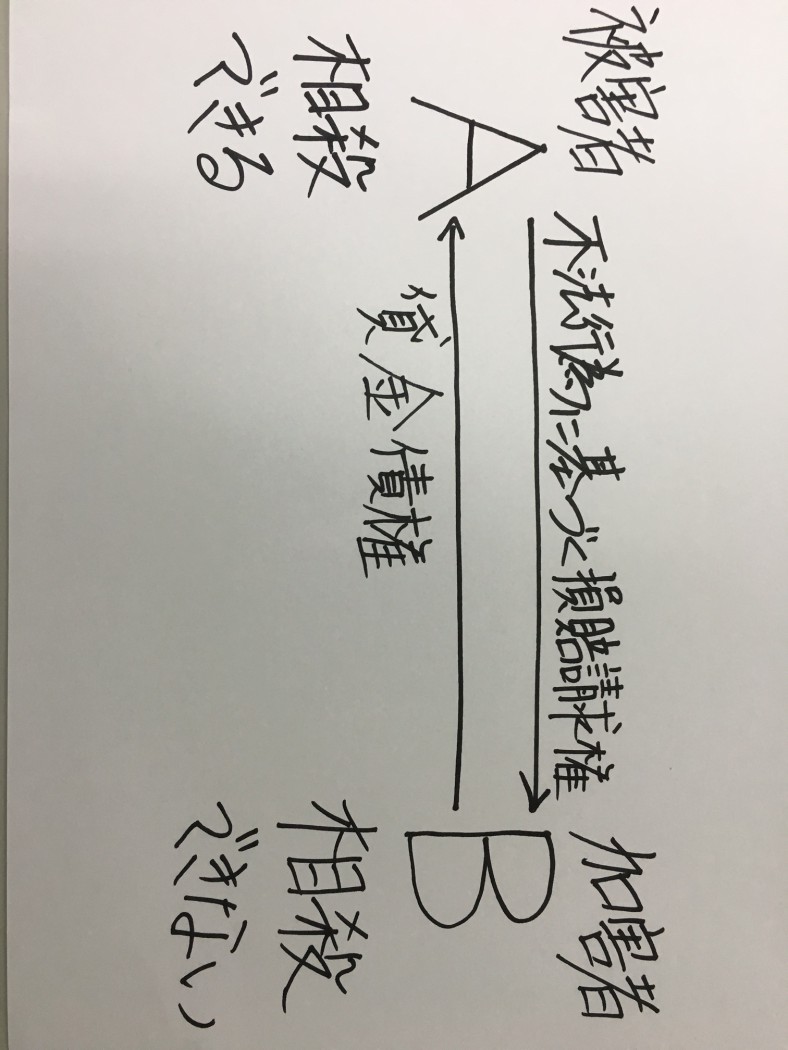 被害者
不法行為に基づく損賠請求権
加害者
A
B
貸金債権
相殺
できる
相殺
できない